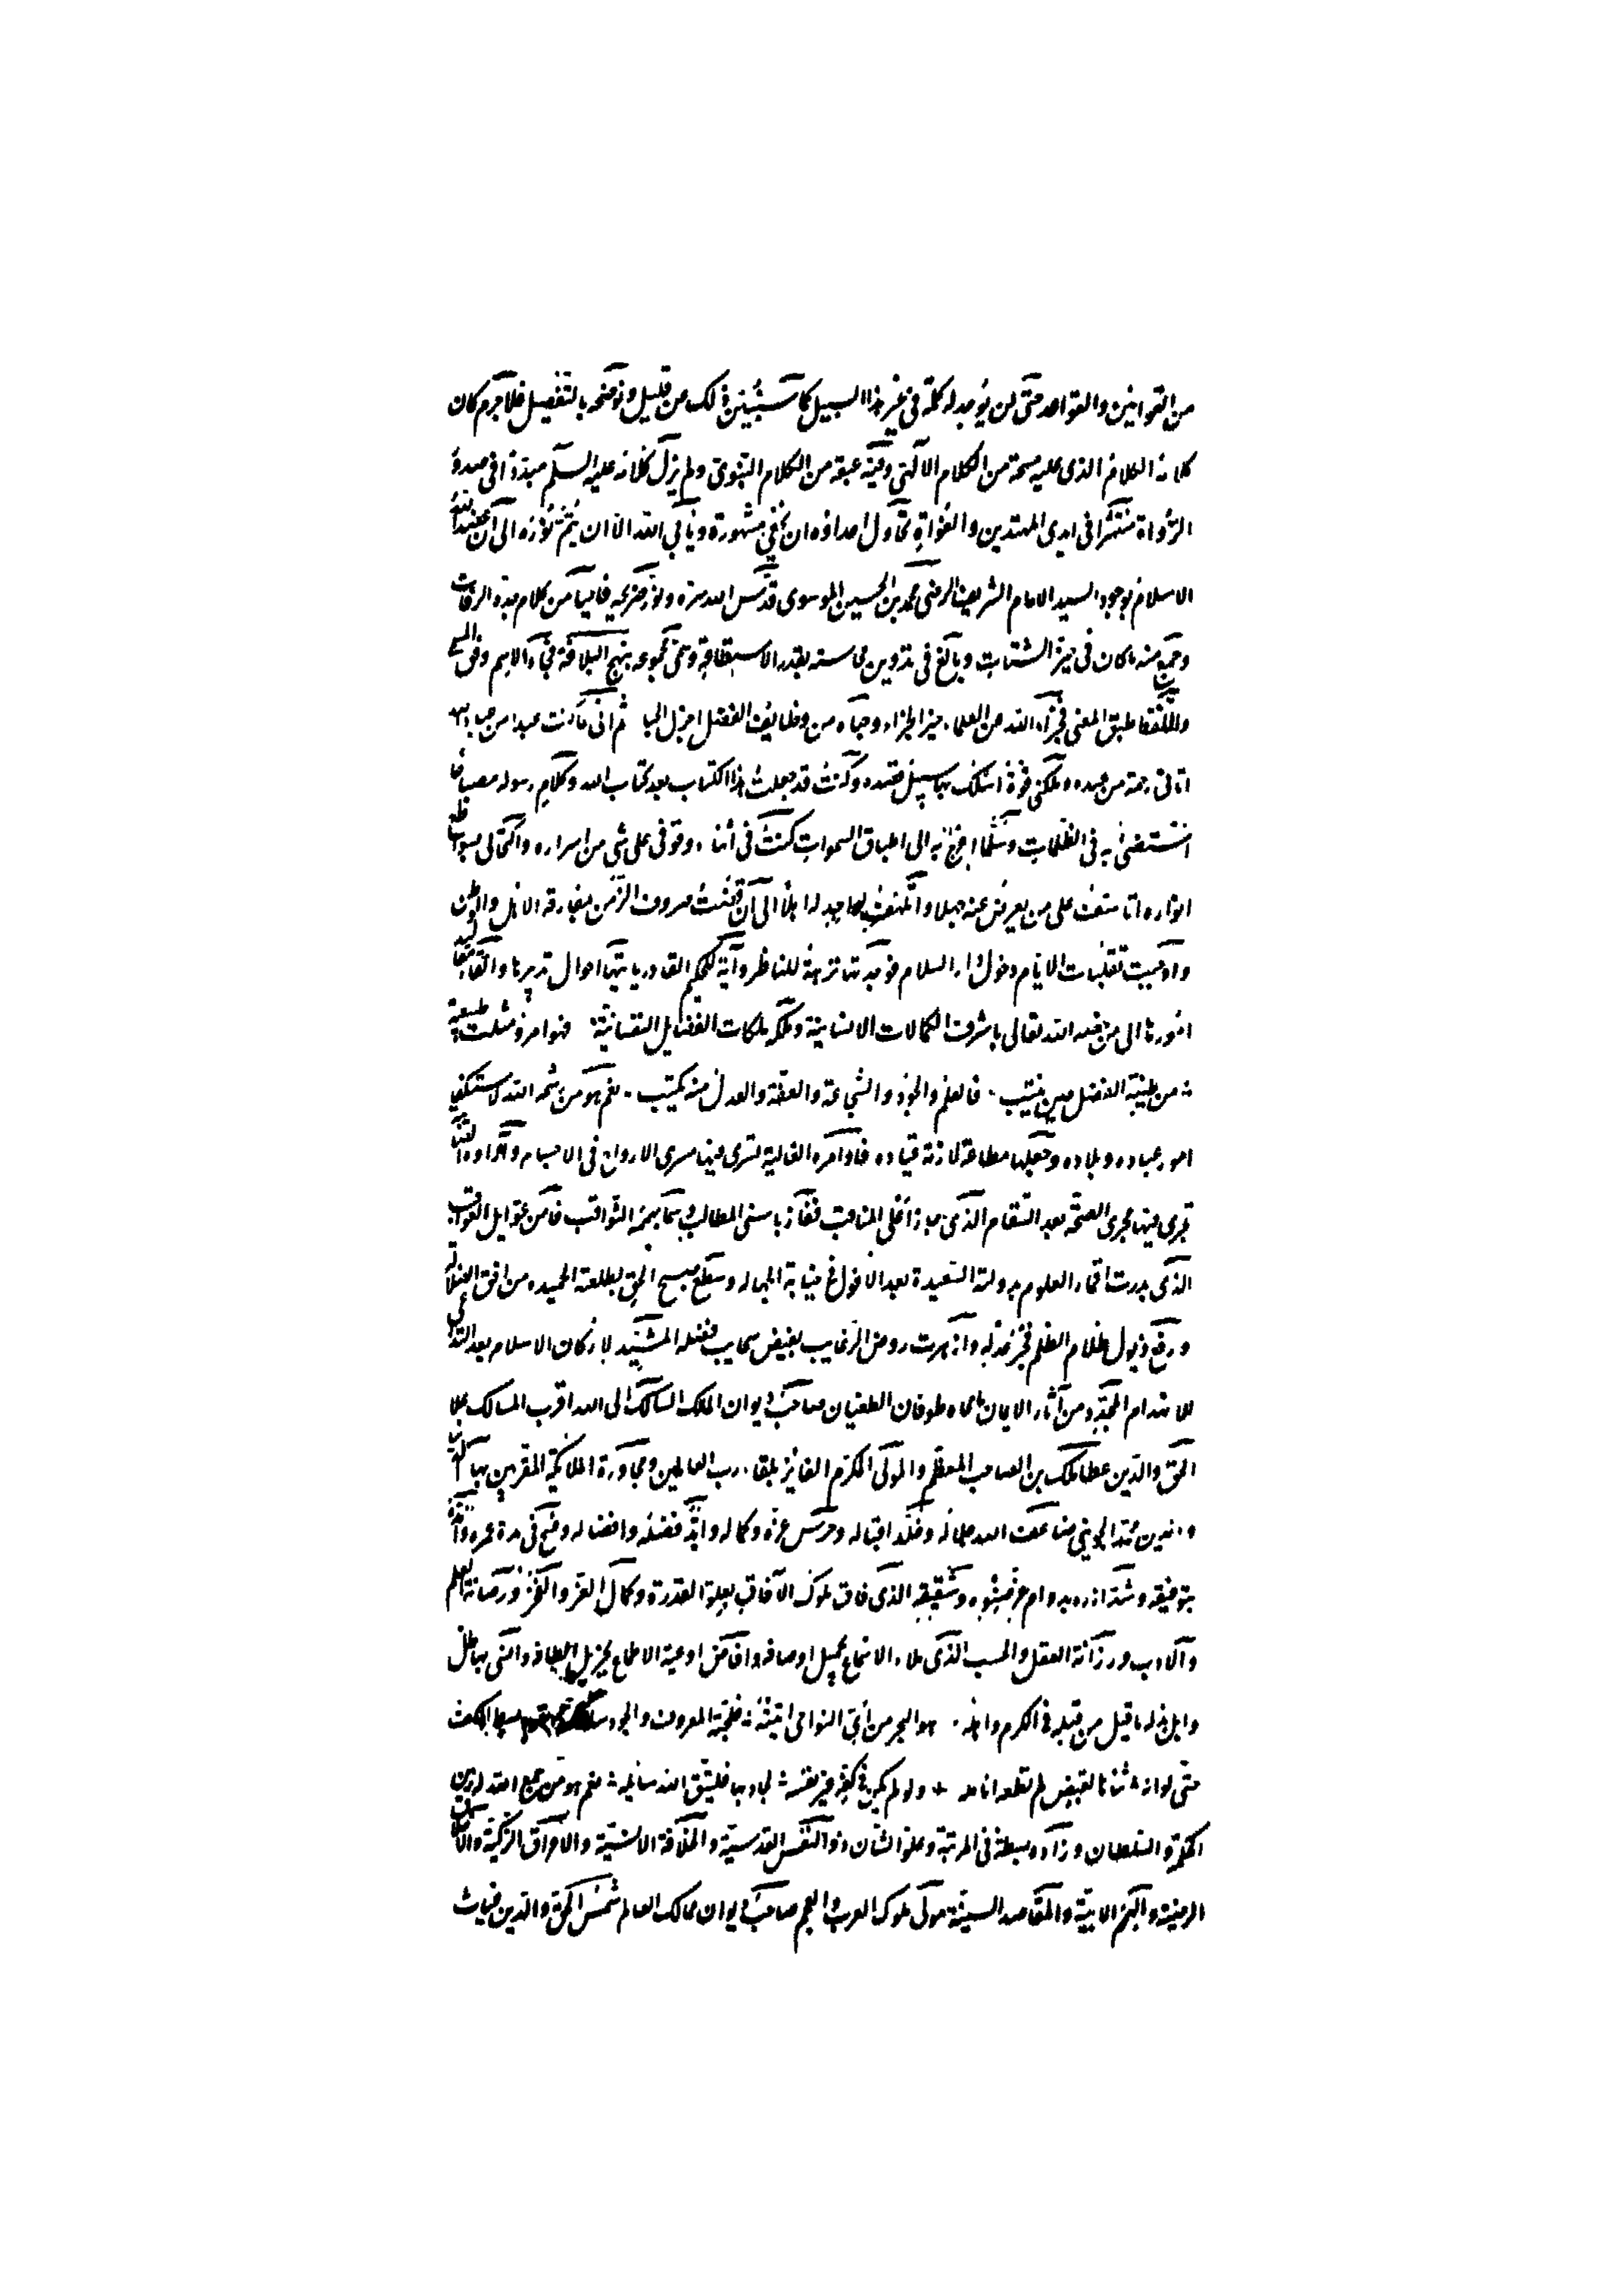 من القوانين والقواعد حتى لن يوجد له كلمة في غير هذا السبيل كما ستبين ذلك عن قليل ونوضحه بالتفصيل فلا جرم كان
كلامه الكلام الذي عليه مسحة من الكلام الآلهي وفيه عبقة من الكلام النبوي ولم يزل كلامه عليه السلم مبذذا في صدور
الرواة منتشرا في ايدي المهتدين والغواة تحاول اعداؤه ان يخفي مشهورة ويأبى الله الا ان يتم نوره الى ان عضد الله
الاسلام بوجود السيد الامام الشريف الرضي محمد بن الحسين الموسوي قدس الله سره ونور ضريحه فاحيا من كلام جده الرفات
وجمع منه ما كان في حيز الشتات وبالغ في تدوين محاسنه بقدر الاستطاعة وسمى مجموعه بنهج البلاغة فجاء الاسم وفق المسمى
واللفظ طبق المعنى فجزاه الله عن العلماء خير الجزاء وحباه من وظايف الفضل اجزل الحبا ثم انى ما كنت عبدا من عباد الله
اتاني رحمة من عنده وملكني قوة اسلك بها سبيل قصده وكنت قد جعلت هذا الكتاب بعد كتاب الله وكلام رسوله مصباحا
استضئ به في الظلمات وسلما اعرج به الى اطباق السموات كنت في أثناء وقوفي على شي من اسراره واكتحالي بسواطع
انواره اتاسف على من يعرض عنه جهلا واتلهف لو اجد له اهلا الى ان قضت صروف الزمن بمفارقة الاهل والوطن
واوجبت تقلبات الايام دخول دار السلام فوجدتها نزهة للناظر وآية للحكيم القادر بانتهاء احوال تدبيرها والقاء مقاليد
امورها الى من خصه الله تعالى باشرف الكمالات الانسانية وملكه ملكات الفضايل النفسانية فهو امرؤ مثلت طبيعته
من طينة الفضل حين ينتسب فالعلم والجود والشجاعة والعفة والعدل منه يكتسب نعم هو من منحه الله لاستكفاء
امور عباده وبلاده وجعلها مطاعة لازمة قياده فاوامره العالية تسري فيها مسرى الارواح في الاجسام وآراؤه الثاقبة
تجري فيها مجرى الصحة بعد السقام الذي حاز أعلى المناقب ففاز باسنى المطالب وسما بهممه الثواقب فأمن غوايل العواقب
الذي بدرت اقمار العلوم بدولته السعيدة بعد الافول في غيابة الجهاله وسطع صبح الحق بطلعته الحميده من افق الضلالة
ورفع ذيول ظلام الظلم فجر عدله وازهرت روض الرغايب بفيض سحايب فضله المشيد لاركان الاسلام بعد التداعي
للانهدام المجدد من آثار الايمان ما محاه طوفان الطغيان صاحب ديوان الملك السالك الى الله اقرب المسالك علاء
الحق والدين عطا ملك بن الصاحب المعظم والمولى المكرم الفائز بلقاء رب العالمين ومجاورة الملائكة المقربين بهاء الدنيا
والدين محمد الجويني ضاعف الله جلاله وخلد اقباله وحرس عزه وكماله وابد فضله وافضاله وفسح في مدة عمره وامده
بتوفيقه وشد ازره بدوام عز صنوه وشقيقه الذي فاق ملوك الآفاق بعلو القدرة وكمال العز والفخر ورصانة العلم
والادب ورزانة العقل والحسب الذي ملاء الاسماع بجميل اوصافه وافاض اوعية الاطماع بجزيل الطافه واكتفى بهاطل
وابل بذله ما قيل من قبله في الكرم واهله هو البحر من أي النواحي اتيته فلجته المعروف والجود ساحله تعود بسط الكف
حتى لو انه ثناها لقبض لم تطعه انامله ولو لم يكن في كفه غير نفسه لجاد بها فليتق الله سائله نعم هو من جمع الله له بين
الحكمة والسلطان وزاده بسطة في المرتبة وعلو الشأن ذو النفس القدسية والخلافة الانسية والاعراق الزكية والاخلاق
الرضية والهمم الابية والمقاصد السنية مولى ملوك العرب والعجم صاحب ديوان ممالك العالم شمس الحق والدين غياث